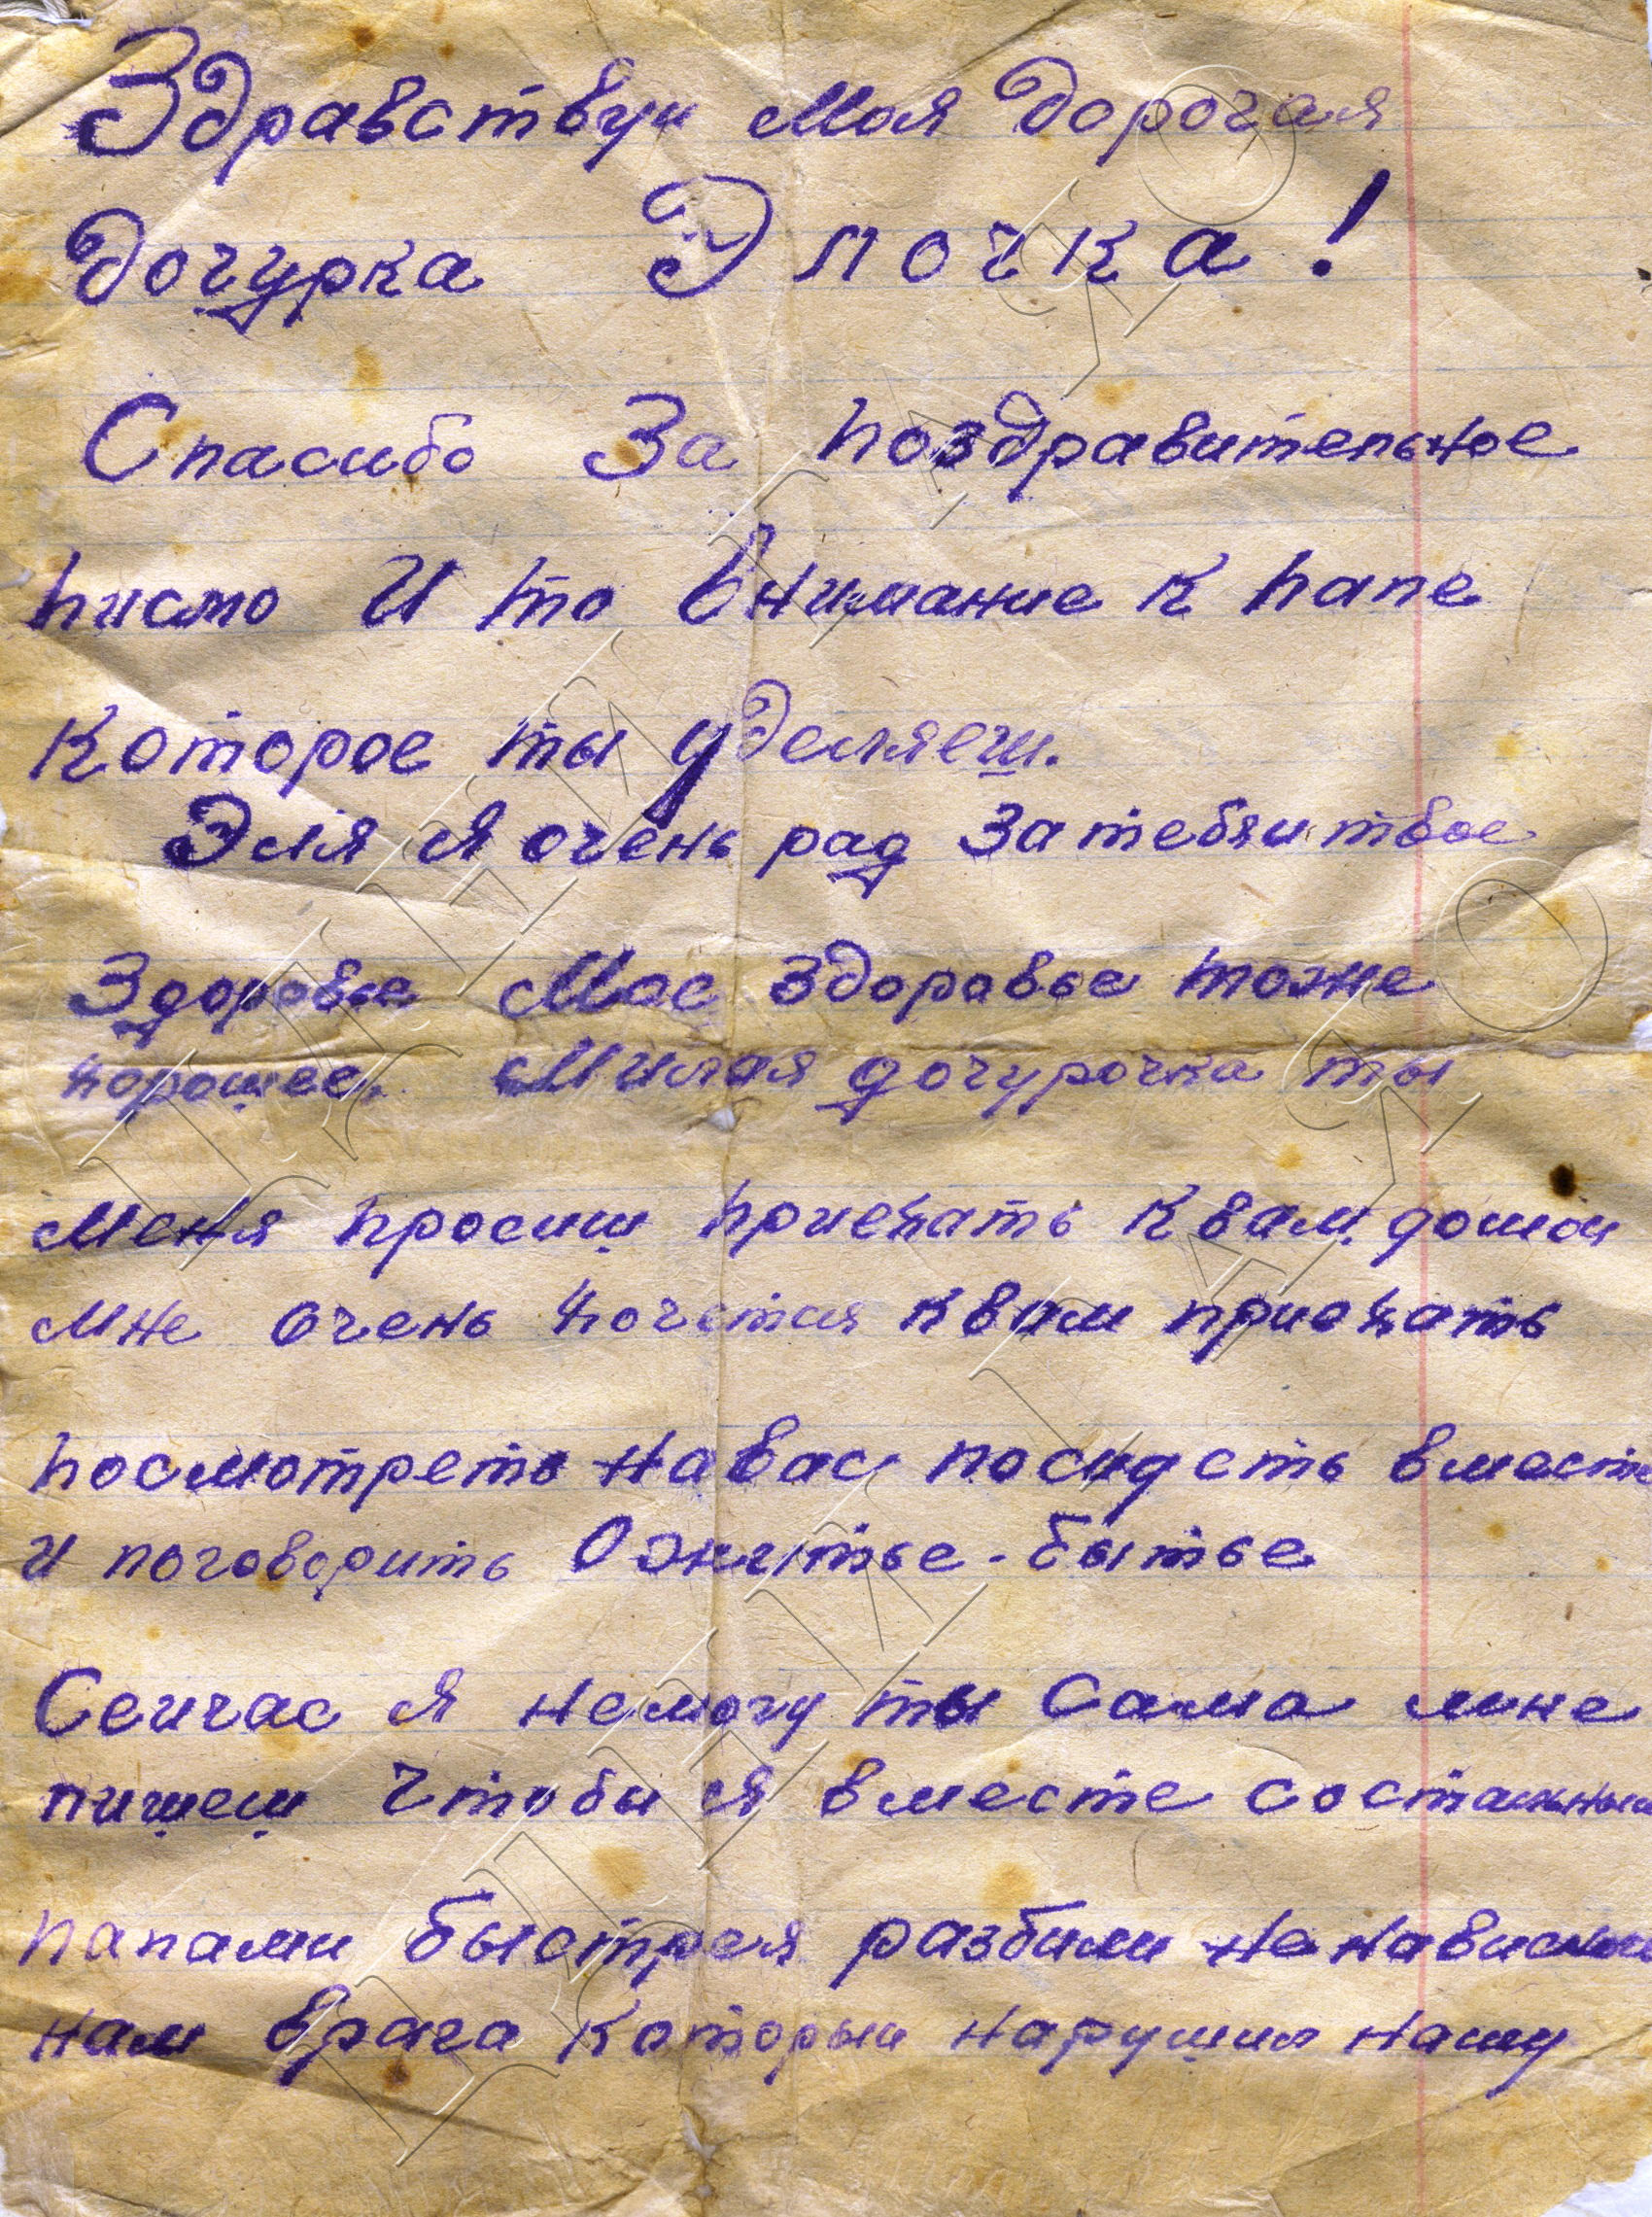 Здравствуи Моя дорогая
дочурка Элочка!
Спасибо За поздравительное
писмо И то Внимание к папе
Которое ты уделяеш.
Эля Я очень рад За тебя и твое
Здоровье Мое здоровье тоже
хорошее. Милая дочурочка ты
Меня просиш приехать К вам домои
Мне очень хочется к вам приехать
посмотреть на вас посидеть вместе
и поговорить О житье-бытье
Сеичас Я не могу ты Сама мне
пишеш Чтобы Я вместе состальными
папами быстрея разбили не нависного
нам врага Которыи нарушил нашу